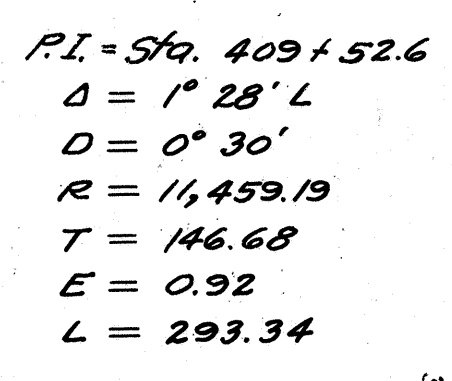 P.I. = Sta. 409 + 52.6
Δ = 1° 28' L
D = 0° 30'
R = 11,459.19
T = 146.68
E = 0.92
L = 293.34